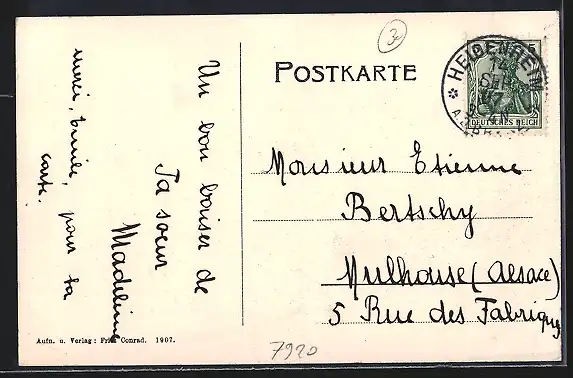 3
POSTKARTE
HEIDENHEIM
14
SEP
07
DEUTSCHES REICH
5
Monsieur Etienne
Bertschy
Mulhouse (Alsace)
5 Rue des Fabriques
Un bon baiser de
Ta soeur
Madeleine
merci, pour ta
carte.
Aufn. u. Verlag: Fritz Conrad. 1907.
7920